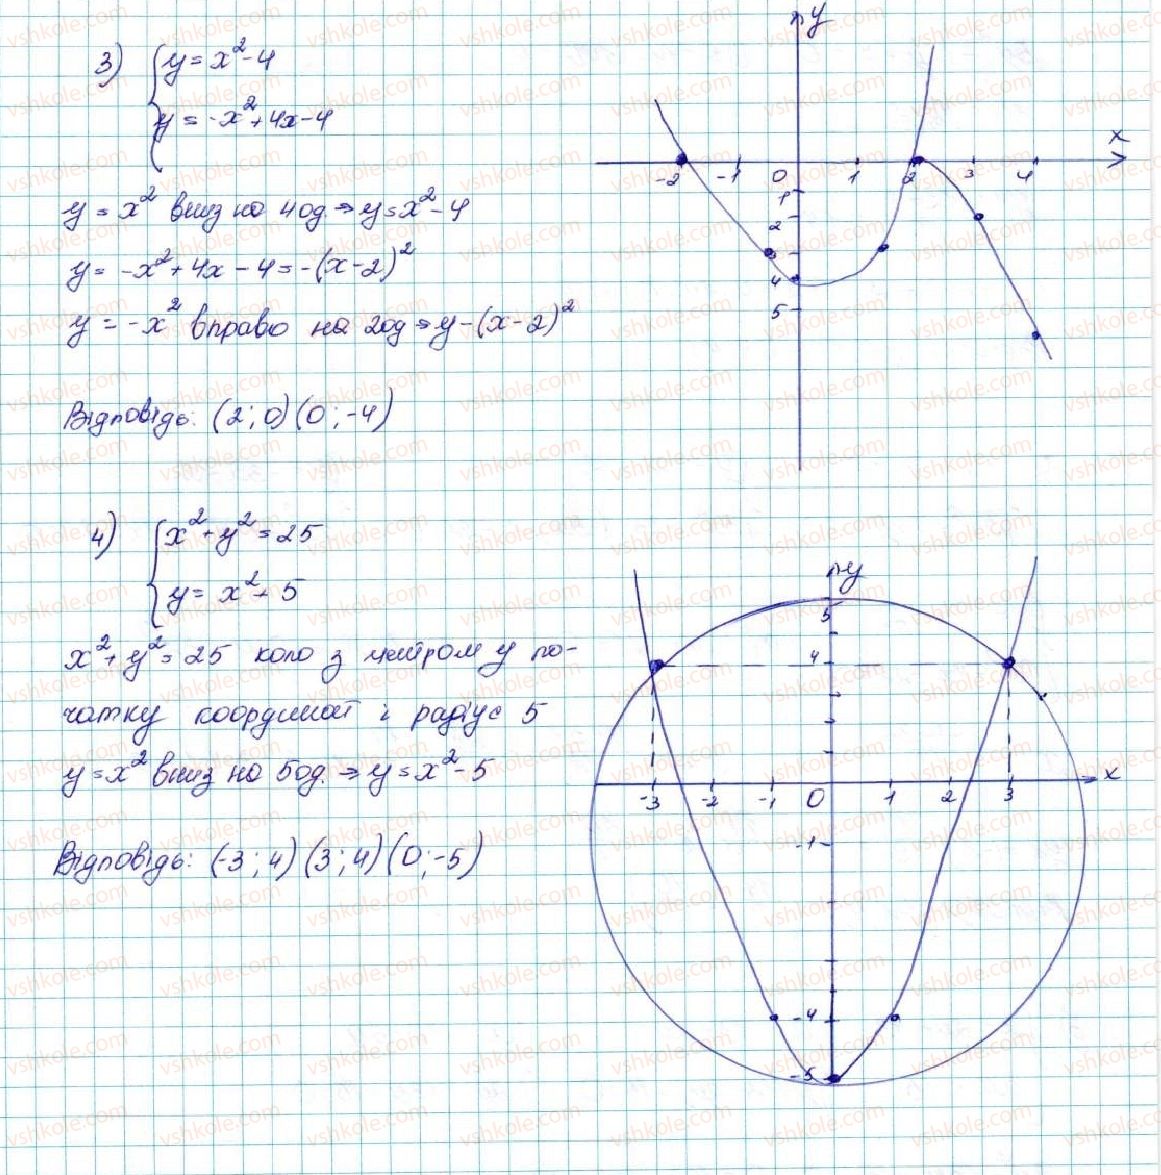 3) { y = x² - 4
y = -x² + 4x - 4
y = x² вниз на 4 од. ⇒ y = x² - 4
y = -x² + 4x - 4 = -(x-2)²
y = -x² вправо на 2 од ⇒ y - (x-2)²
Відповідь: (2; 0) (0; -4)
y
x
-2 -1 0 1 2 3 4
1
2
3
4
5
4) { x² + y² = 25
y = x² - 5
x² + y² = 25 коло з центром у по-
чатку координат і радіус 5
y = x² вниз на 5 од. ⇒ y = x² - 5
Відповідь: (-3; 4) (3; 4) (0; -5)
y
5
4
x
-3 -2 -1 0 1 2 3
-1
-4
-5
vshkole.com